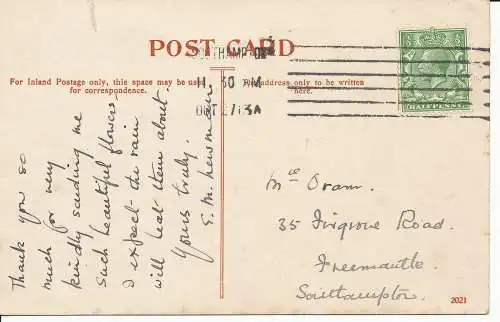 POST CARD
For Inland Postage only, this space may be used
for correspondence.
The address only to be written
here.
SOUTHAMPTON
11 30 M
OCT 27 13A
HALFPENNY
Thank you so
much for very
kindly sending me
such beautiful flowers
I expect the rain
will beat them about.
Yours truly.
E. M. Newman
Mrs Oram.
35 Firgrove Road.
Freemantle.
Southampton.
2021